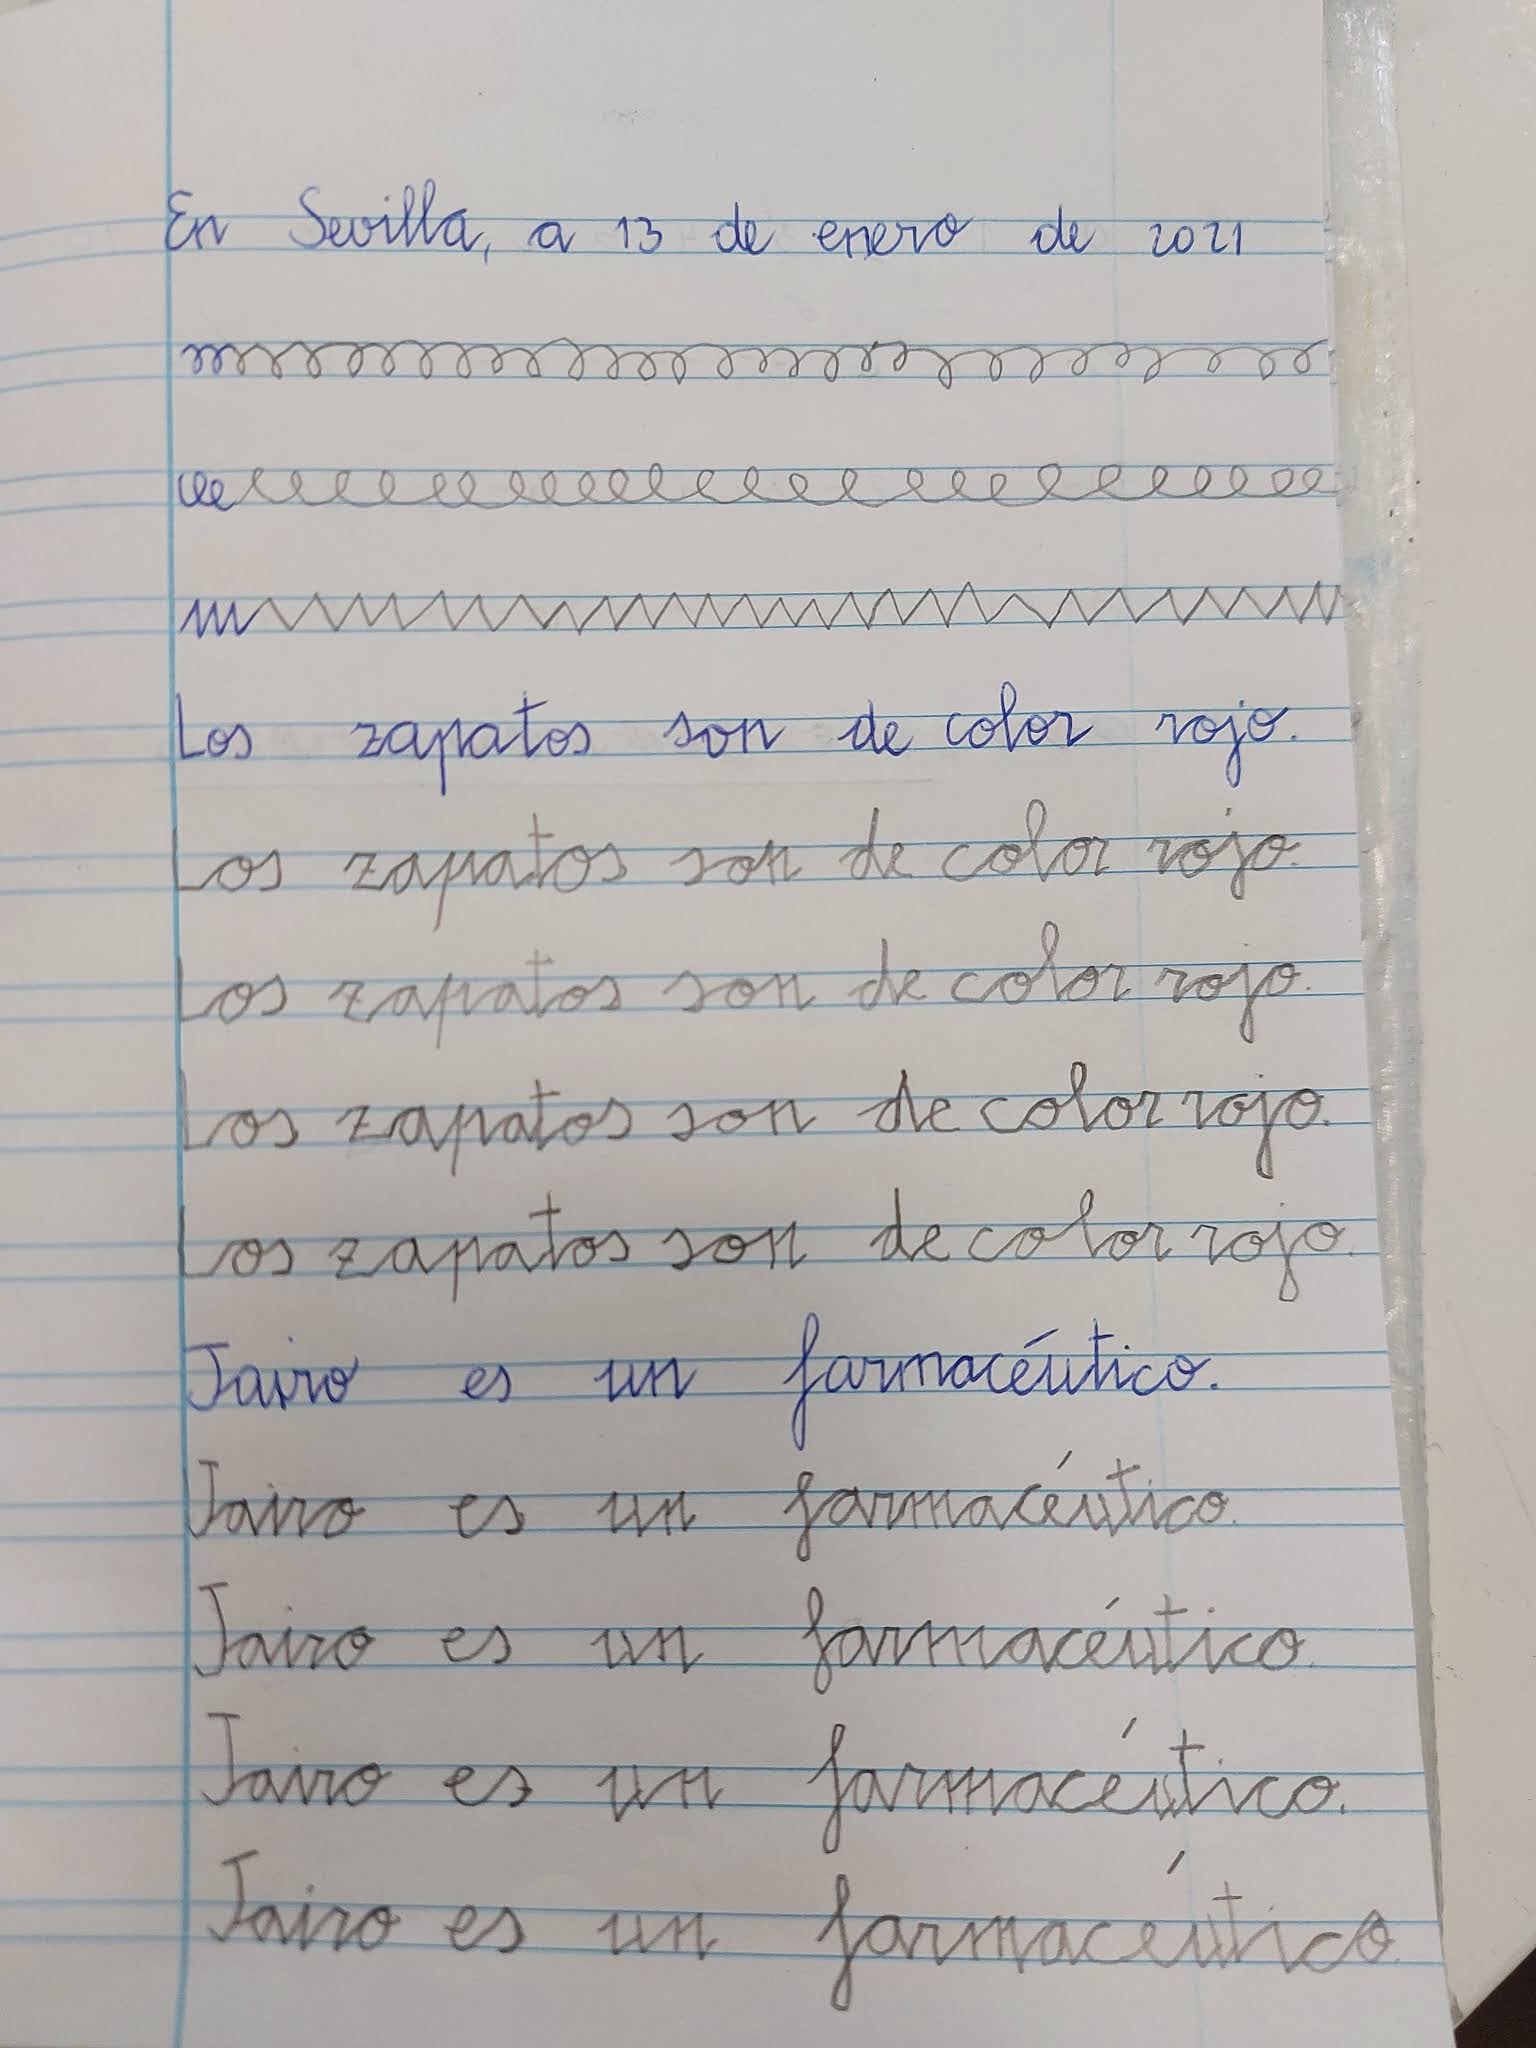 En Sevilla, a 13 de enero de 2021
Los zapatos son de color rojo.
Los zapatos son de color rojo.
Los zapatos son de color rojo.
Los zapatos son de color rojo.
Los zapatos son de color rojo.
Jairo es un farmacéutico.
Jairo es un farmacéutico.
Jairo es un farmacéutico.
Jairo es un farmacéutico.
Jairo es un farmacéutico.